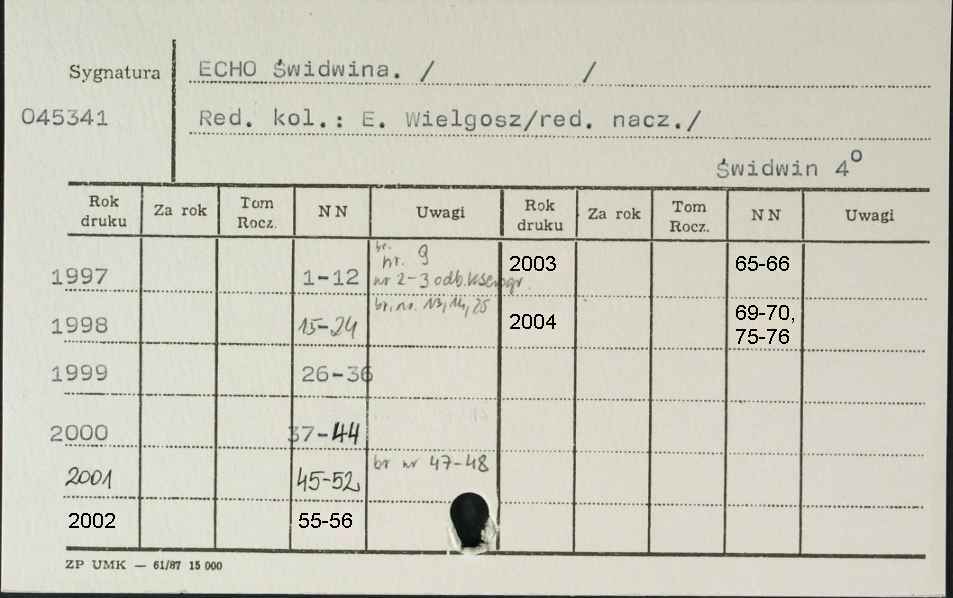 Sygnatura
ECHO Świdwina. / /
045341
Red. kol.: E. Wielgosz/red. nacz./
Świdwin 4°
Rok druku Za rok Tom Rocz. NN Uwagi Rok druku Za rok Tom Rocz. NN Uwagi
br. nr. 9
1997 1-12 nr 2-3 odb. kserogr. 2003 65-66
br. nr. 13, 14, 25
1998 15-24 2004 69-70,
75-76
1999 26-36
2000 37-44
2001 45-52 br nr 47-48
2002 55-56
ZP UMK — 61/87 15 000